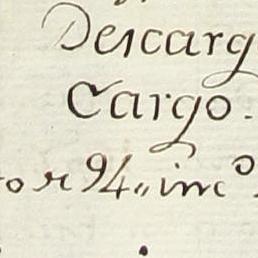 Descarg
Cargo.
or 94,, inc.º